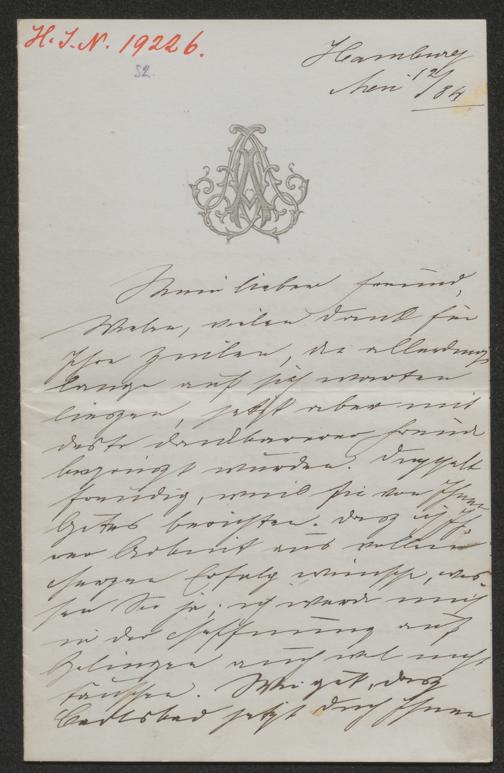 H. I. N. 19226.
52.
Hamburg
Mai 12/84
Mein lieber Freund,
Vielen, vielen Dank für
Ihre Zeilen, die allerdings
lange auf sich warten
liessen, jetzt aber mit
desto dankbarerer Freude
begrüsst wurden. Doppelt
freudig, weil sie von Ihnen
Gutes berichten. Dass ich Ih-
rer Arbeit aus vollem
Herzen Erfolg wünsche, wis-
sen Sie ja; ich werde mich
in der Hoffnung auf
Gelingen auch wol nicht
täuschen. Wie gut, dass
Carlsbad jetzt doch Ihnen